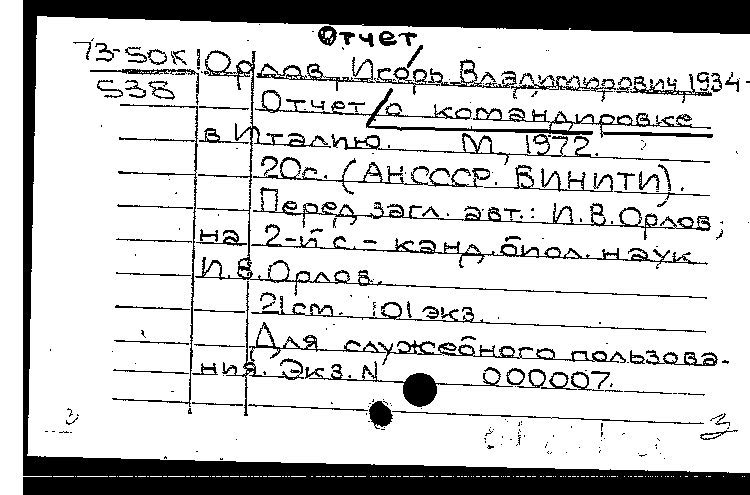 Отчет
73-50К Орлов, Игорь Владимирович, 1934-
538
Отчет о командировке
в Италию. М., 1972.
20с. (АНСССР. ВИНИТИ).
Перед загл. авт.: И.В.Орлов;
на 2-й с. - канд. биол. наук
И.В.Орлов.
21 см. 101 экз.
Для служебного пользова-
ния. Экз. N 000007.
3 3